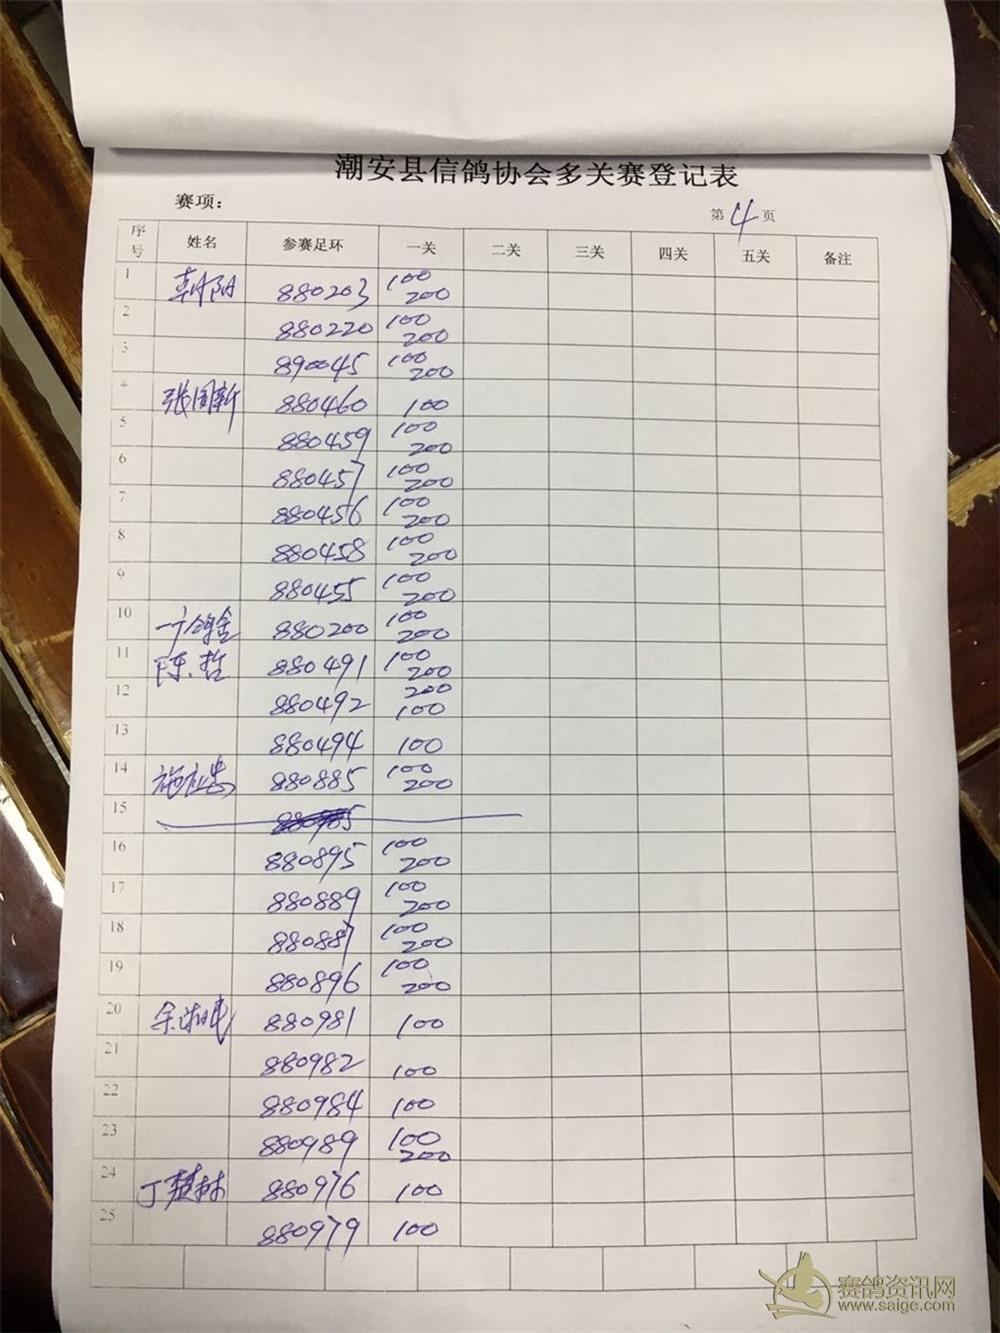 潮安县信鸽协会多关赛登记表
赛项： 第4页
序号 姓名 参赛足环 一关 二关 三关 四关 五关 备注
1 朝阳 880203 100 200
2 880220 100 200
3 890045 100 200
4 张国新 880460 100
5 880459 100 200
6 880457 100 200
7 880456 100 200
8 880458 100 200
9 880455 100 200
10 880200 100 200
11 陈哲 880491 100 200
12 880492 200 100
13 880494 100
14 施应忠 880885 100 200
15
16 880895 100 200
17 880889 100 200
18 880887 100 200
19 880896 100 200
20 880981 100
21 880982 100
22 880984 100
23 880989 100 200
24 丁楚林 880976 100
25 880979 100
赛鸽资讯网
www.saige.com